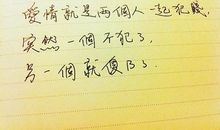 愛情就是两個人一起犯賤.
突然一個不犯了,
另一個就傻B了.